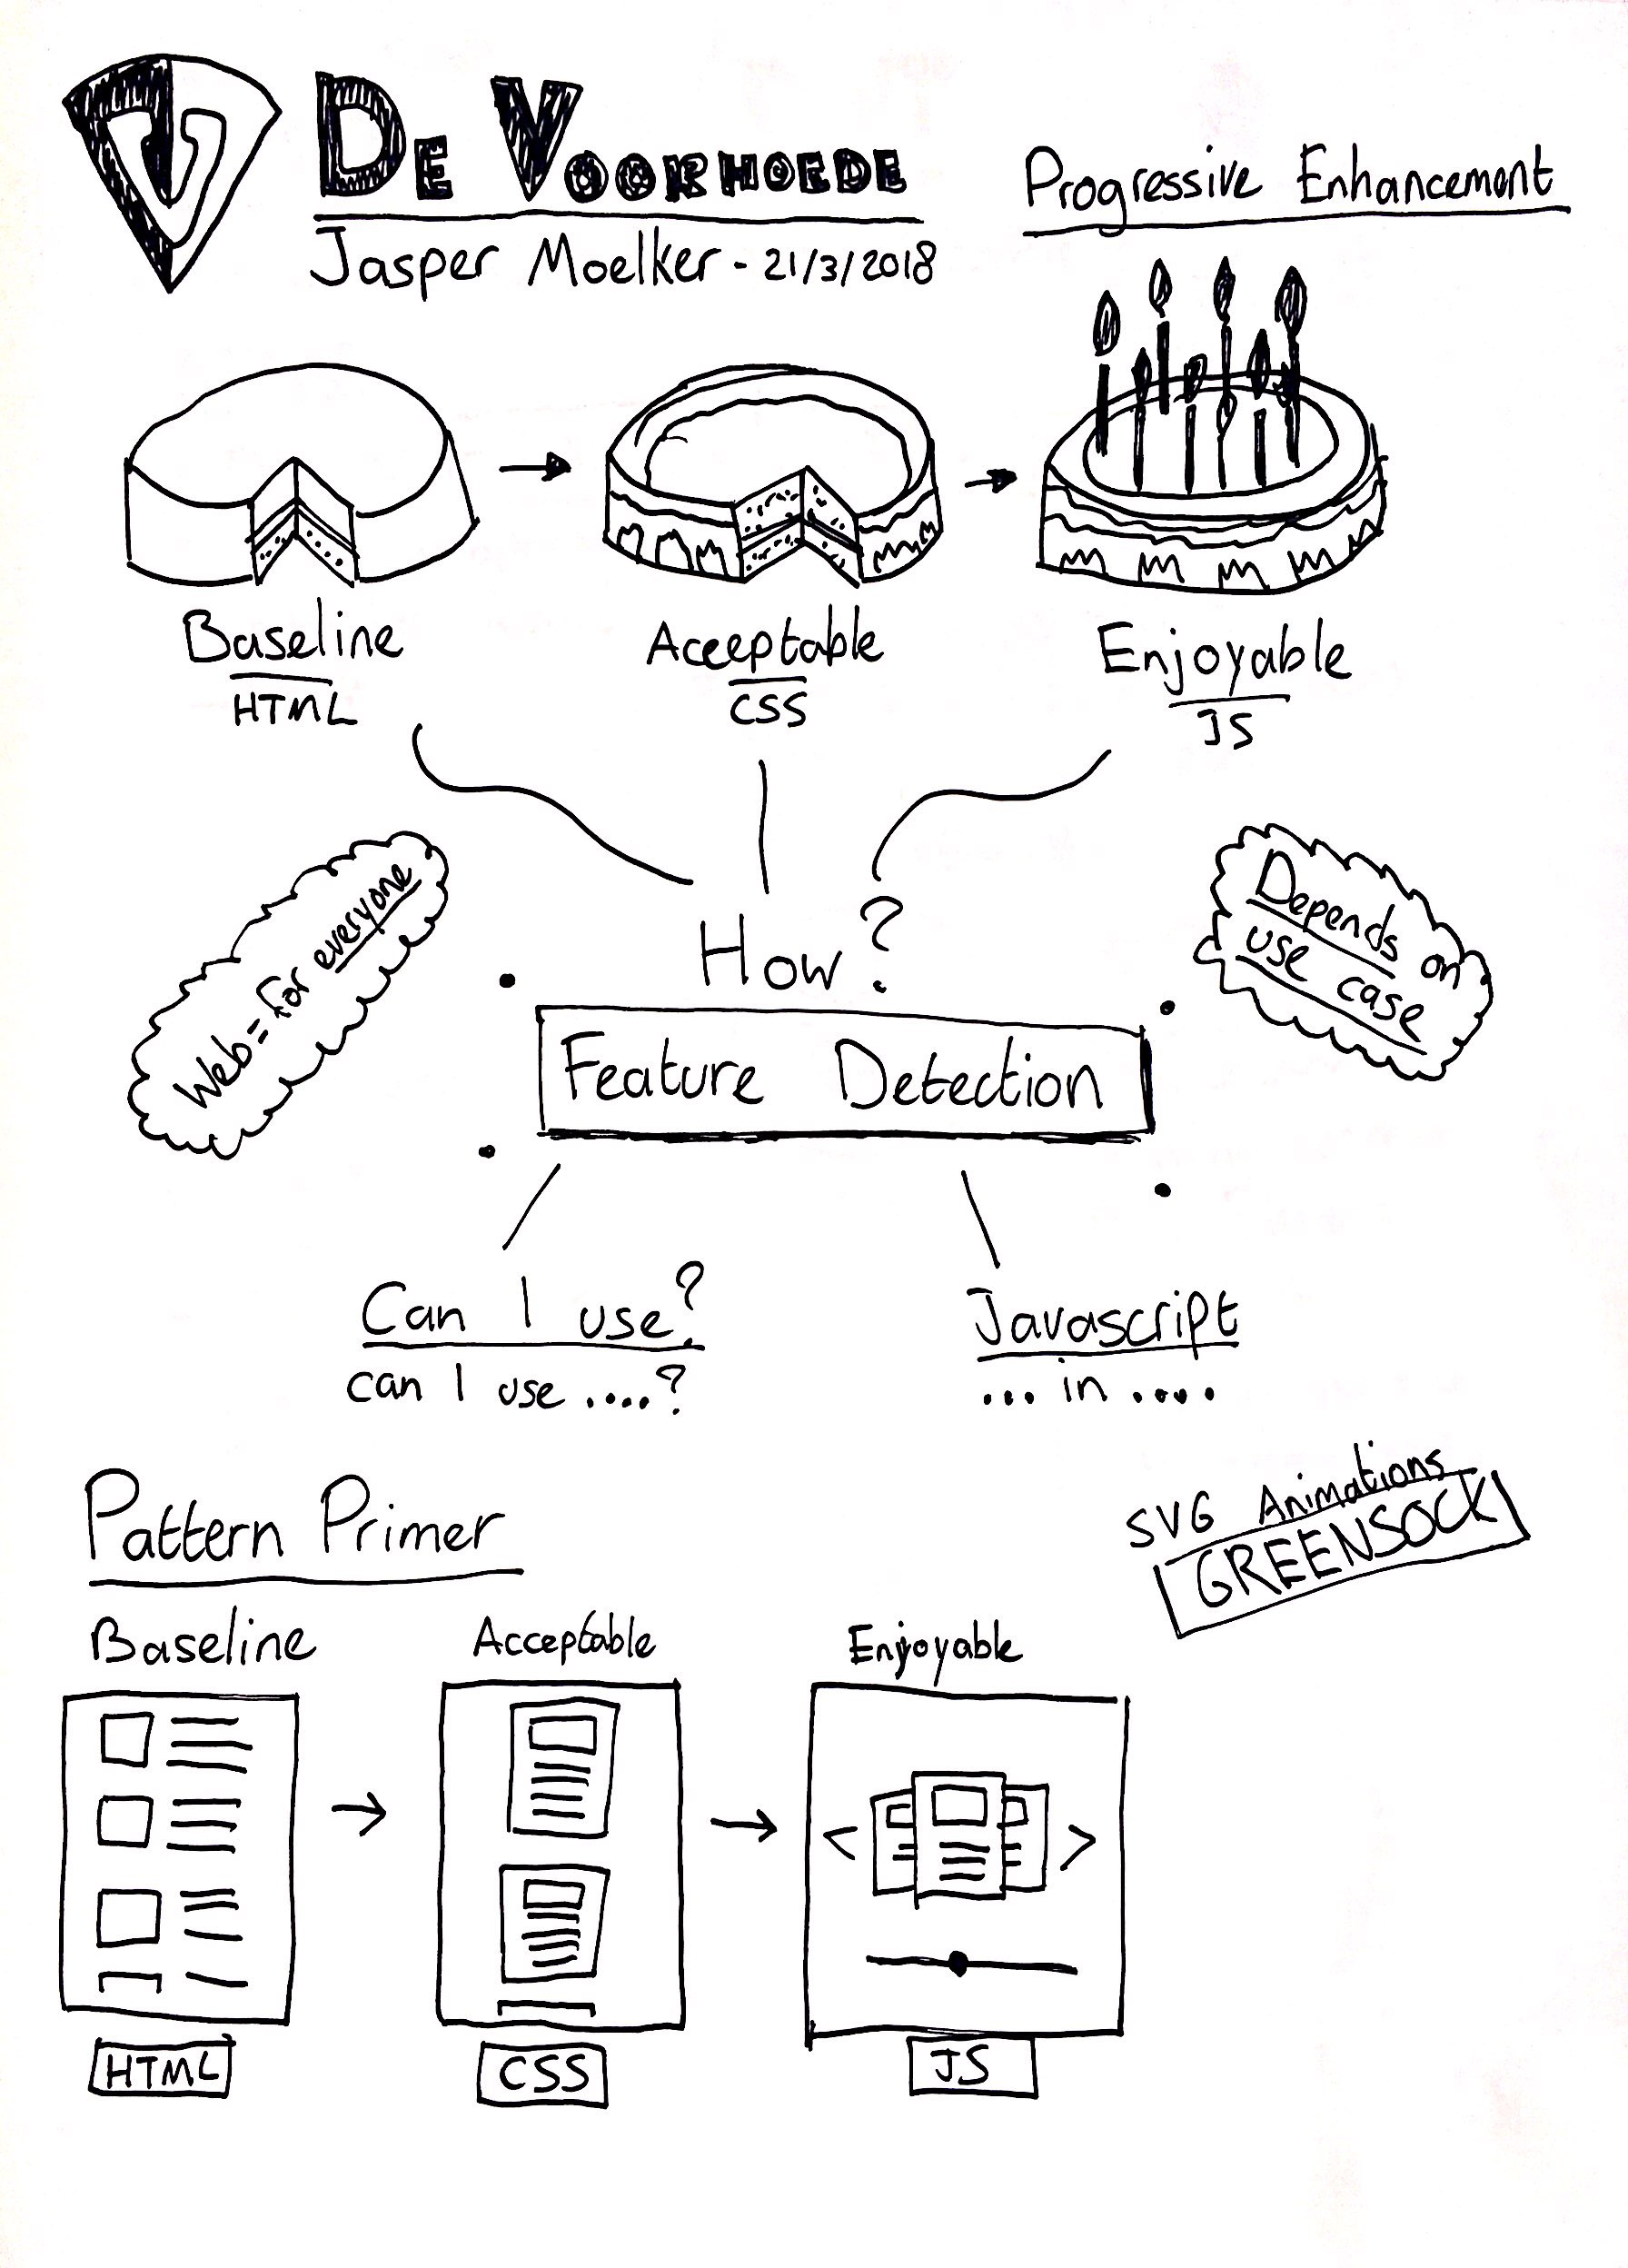 DE VOORHOEDE
Jasper Moelker - 21/3/2018
Progressive Enhancement
Baseline
HTML
Acceptable
CSS
Enjoyable
JS
Web = for everyone
Depends on
use case
How?
Feature Detection
Can I use?
can I use ....?
Javascript
... in ....
Pattern Primer
SVG Animations
GREENSOCK
Baseline
Acceptable
Enjoyable
< >
HTML
CSS
JS